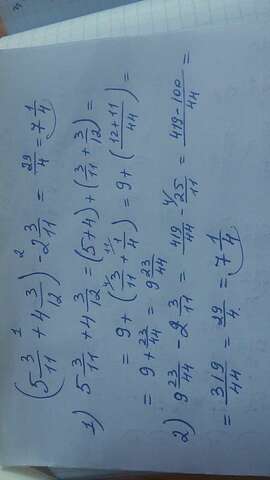 (5 3/11 + 4 3/12) - 2 3/11 = 29/4 = 7 1/4
1) 5 3/11 + 4 3/12 = (5+4) + (3/11 + 3/12) =
= 9 + (3/11 + 1/4) = 9 + (12+11/44) =
= 9 + 23/44 = 9 23/44
2) 9 23/44 - 2 3/11 = 419/44 - 25/11 = 419-100/44 =
= 319/44 = 29/4 = 7 1/4